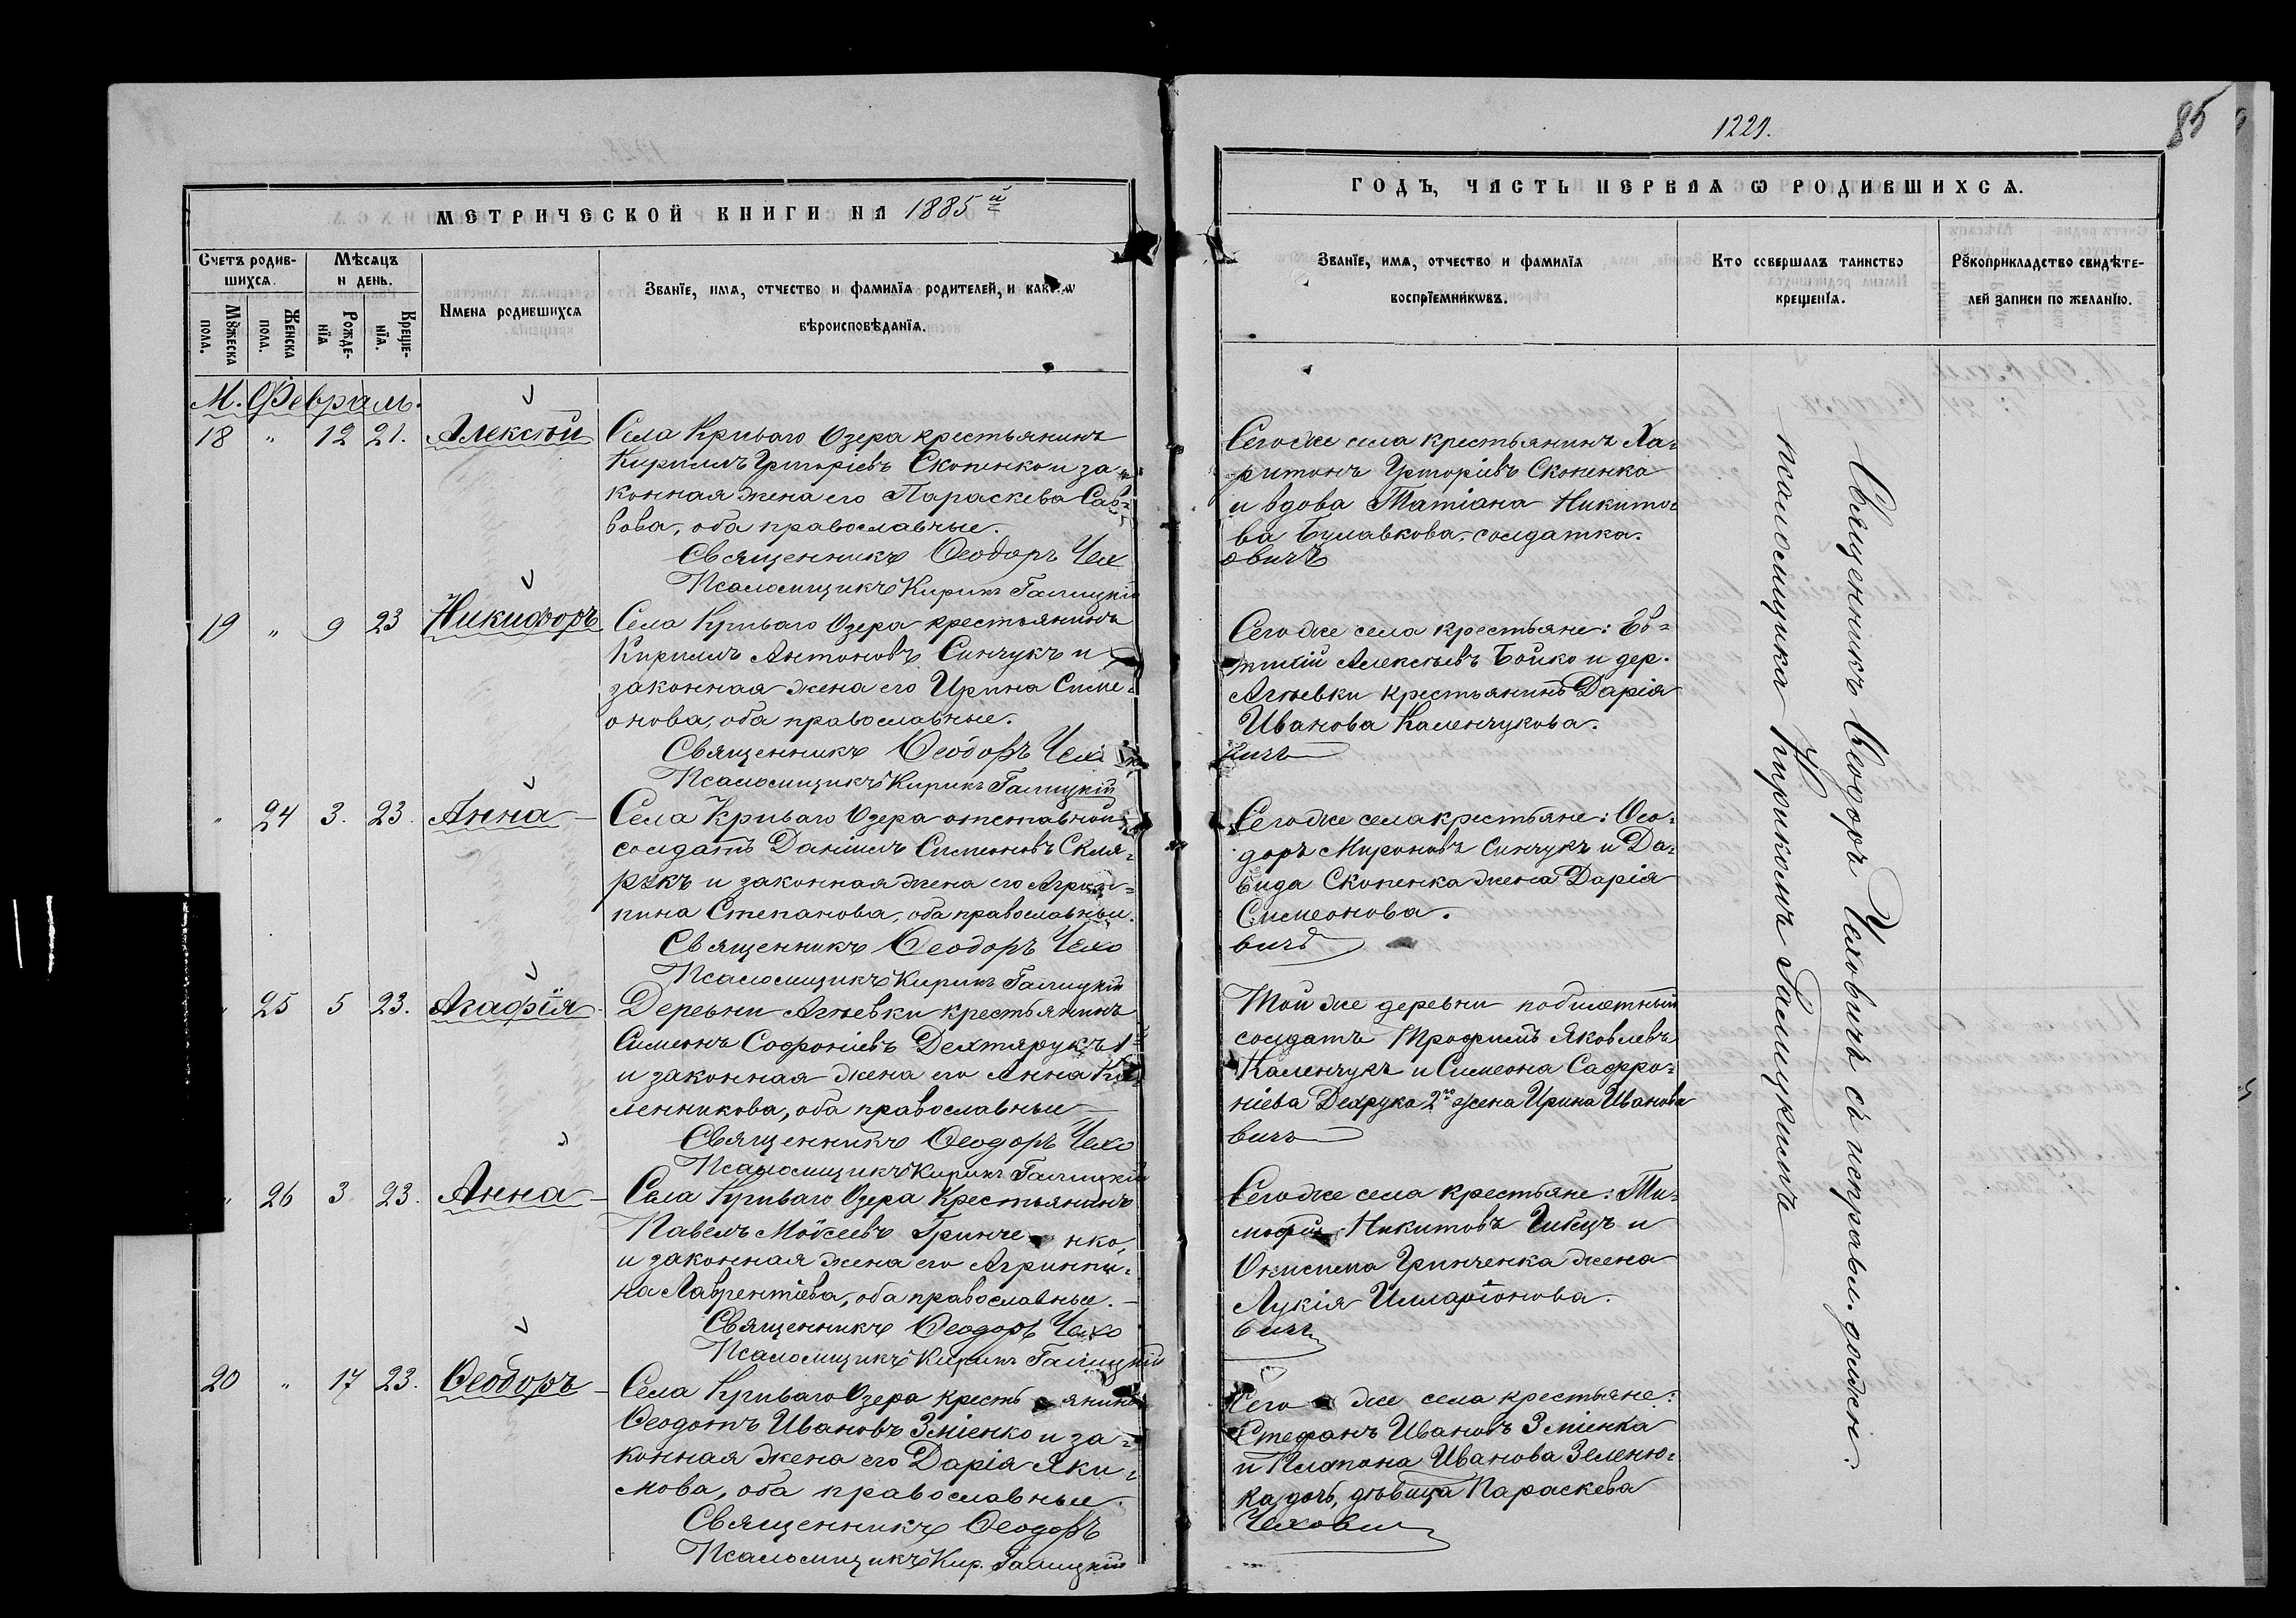 1221.
85
МЕТРИЧЕСКОЙ КНИГИ НА 1885й
ГОДЪ, ЧАСТЬ ПЕРВАЯ Ѡ РОДИВШИХСѦ.
Счетъ родив-
шихсѧ.
Мꙋжеска
пола.
Женска
пола.
Мѣсѧцъ
и день.
Рожде-
нїѧ
Креще-
нїѧ.
Имена родившихсѧ
Званїе, имѧ, отчество и фамилїѧ родителей, и какогѡ
вѣроисповѣданїѧ.
Званїе, имѧ, отчество и фамилїѧ
воспрїемникѡвъ.
Кто совершалъ таинство
крещенїѧ.
Рꙋкоприкладство свидѣте-
лей записи по желанїю.
М. Февраль.
18 " 12 21. Алексѣй
Села Криваго Озера крестьянинъ
Кириллъ Григоріевъ Скопенко и за-
конная жена его Параскева Сав-
вова, оба православные.
Священникъ Ѳеодоръ Чех
Псаломщикъ Кирикъ Галицкій
Сего же села крестьянинъ Ха-
ритонъ Григоріевъ Скопенко
и вдова Татіана Никито-
ва Булавкова солдатка.
овичъ
19 " 9 23 Никифоръ
Села Криваго Озера крестьянинъ
Кириллъ Антоновъ Синчукъ и
законная жена его Ирина Симе-
онова, оба православные.
Священникъ Ѳеодоръ Чехо
Псаломщикъ Кирикъ Галицкій
Сего же села крестьяне: Ев-
тихій Алексѣевъ Бойко и дер.
Агѣевки крестьянинъ Дарія
Иванова Каленчукова.
вичъ
" 24 3. 23. Анна
Села Криваго Озера отставной
солдатъ Даніилъ Симеоновъ Скля-
рукъ и законная жена его Агрип-
пина Степанова, оба православные.
Священникъ Ѳеодоръ Чехо
Псаломщикъ Кирикъ Галицкій
Сего же села крестьяне: Ѳео-
доръ Мироновъ Синчукъ и Да-
вида Скопенка жена Дарія
Симеонова.
вичъ
" 25 5 23. Агафія
Деревни Агѣевки крестьянинъ
Симеонъ Софроніевъ Дехтярукъ 1й
и законная жена его Анна
ленникова, оба православные
Священникъ Ѳеодоръ Чехо
Псаломщикъ Кирикъ Галицкій
Той же деревни побилетный
солдатъ Трофимъ Яковлевъ
Каленчукъ и Симеона Сафро-
ніева Дехрука 2го жена Ирина Иванова
вичъ
" 26 3 23. Анна
Села Криваго Озера крестьянинъ
Павелъ Моѵсеевъ Гринченко,
и законная жена его Агриппи-
на Лаврентіева, оба православные.
Священникъ Ѳеодоръ Чехо
Псаломщикъ Кирикъ Галицкій
Сего же села крестьяне: Ти-
мофей Никитовъ и
Онисима Гринченка жена
Лукія Илларіонова.
вичъ
20 " 17 23. Ѳеодоръ
Села Криваго Озера крестьянинъ
Ѳеодотъ Ивановъ Зміенко и за-
конная жена его Дарія Яки-
мова, оба православные.
Священникъ Ѳеодоръ
Псаломщикъ Кир. Галицкій
Сего же села крестьяне:
Стефанъ Ивановъ Зміенка
и Платона Иванова Зеленю-
ка дочь, дѣвица Параскева
Чехович
Священникъ Ѳеодоръ Чеховичъ съ исправл. должн.
псаломщика Кирикомъ Галицкимъ